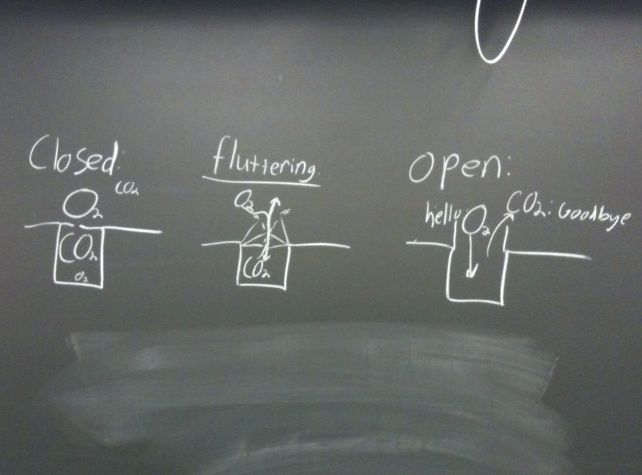 Closed:
O2 CO2
CO2
O2
fluttering:
O2
CO2
Open:
hello O2 CO2: Goodbye